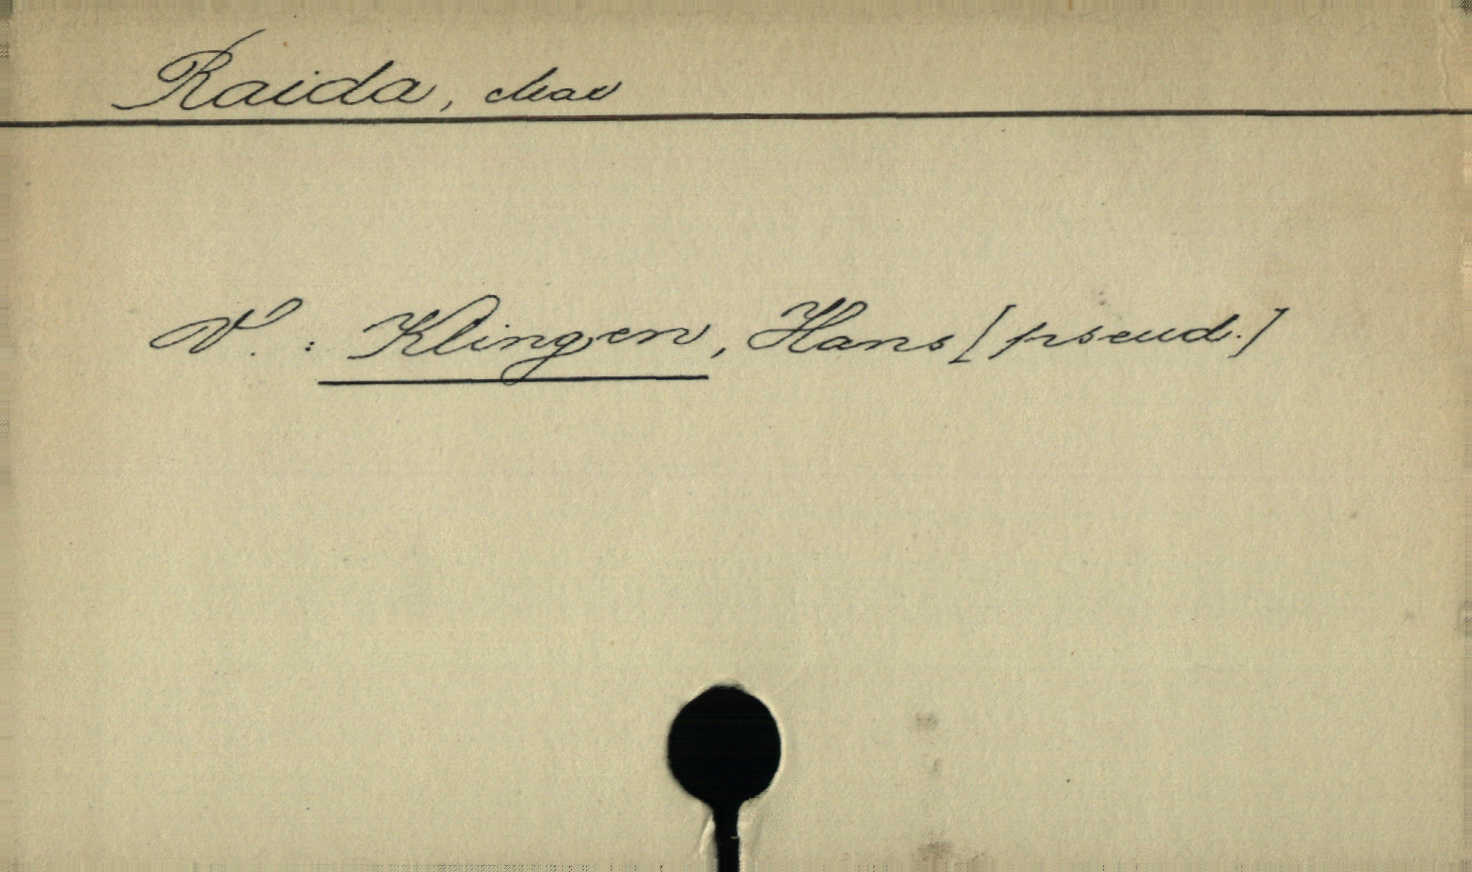 Raida, Max
V. : Klingen, Hans [pseud.]